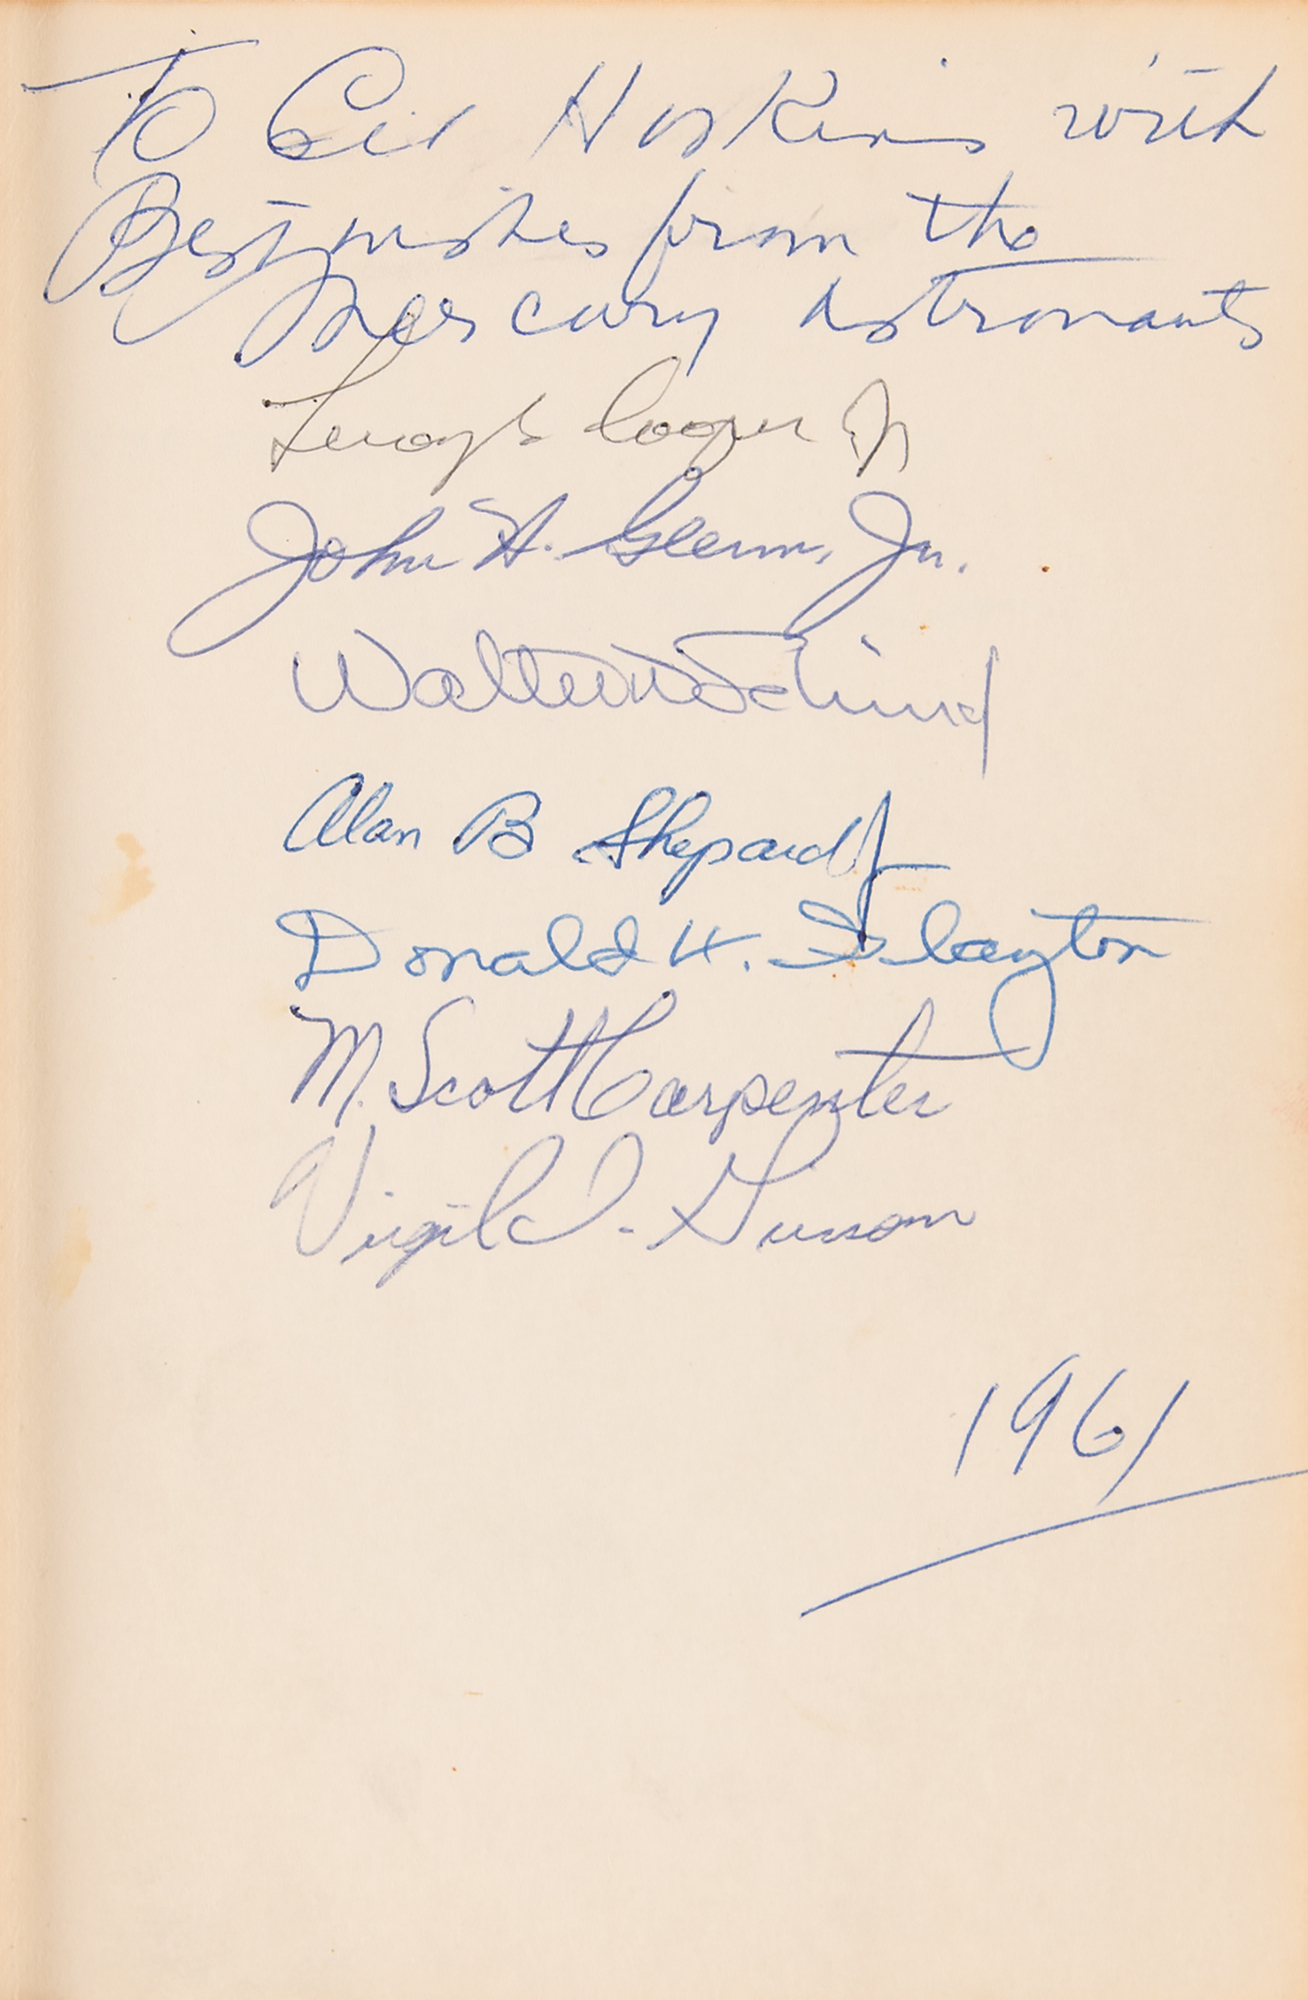 To Hoskins with
Best wishes from the
Mercury Astronauts
Leroy G Cooper Jr
John H. Glenn, Jr.
Walter M Schirra
Alan B Shepard Jr
Donald K. Slayton
M. Scott Carpenter
Virgil I. Grissom
1961